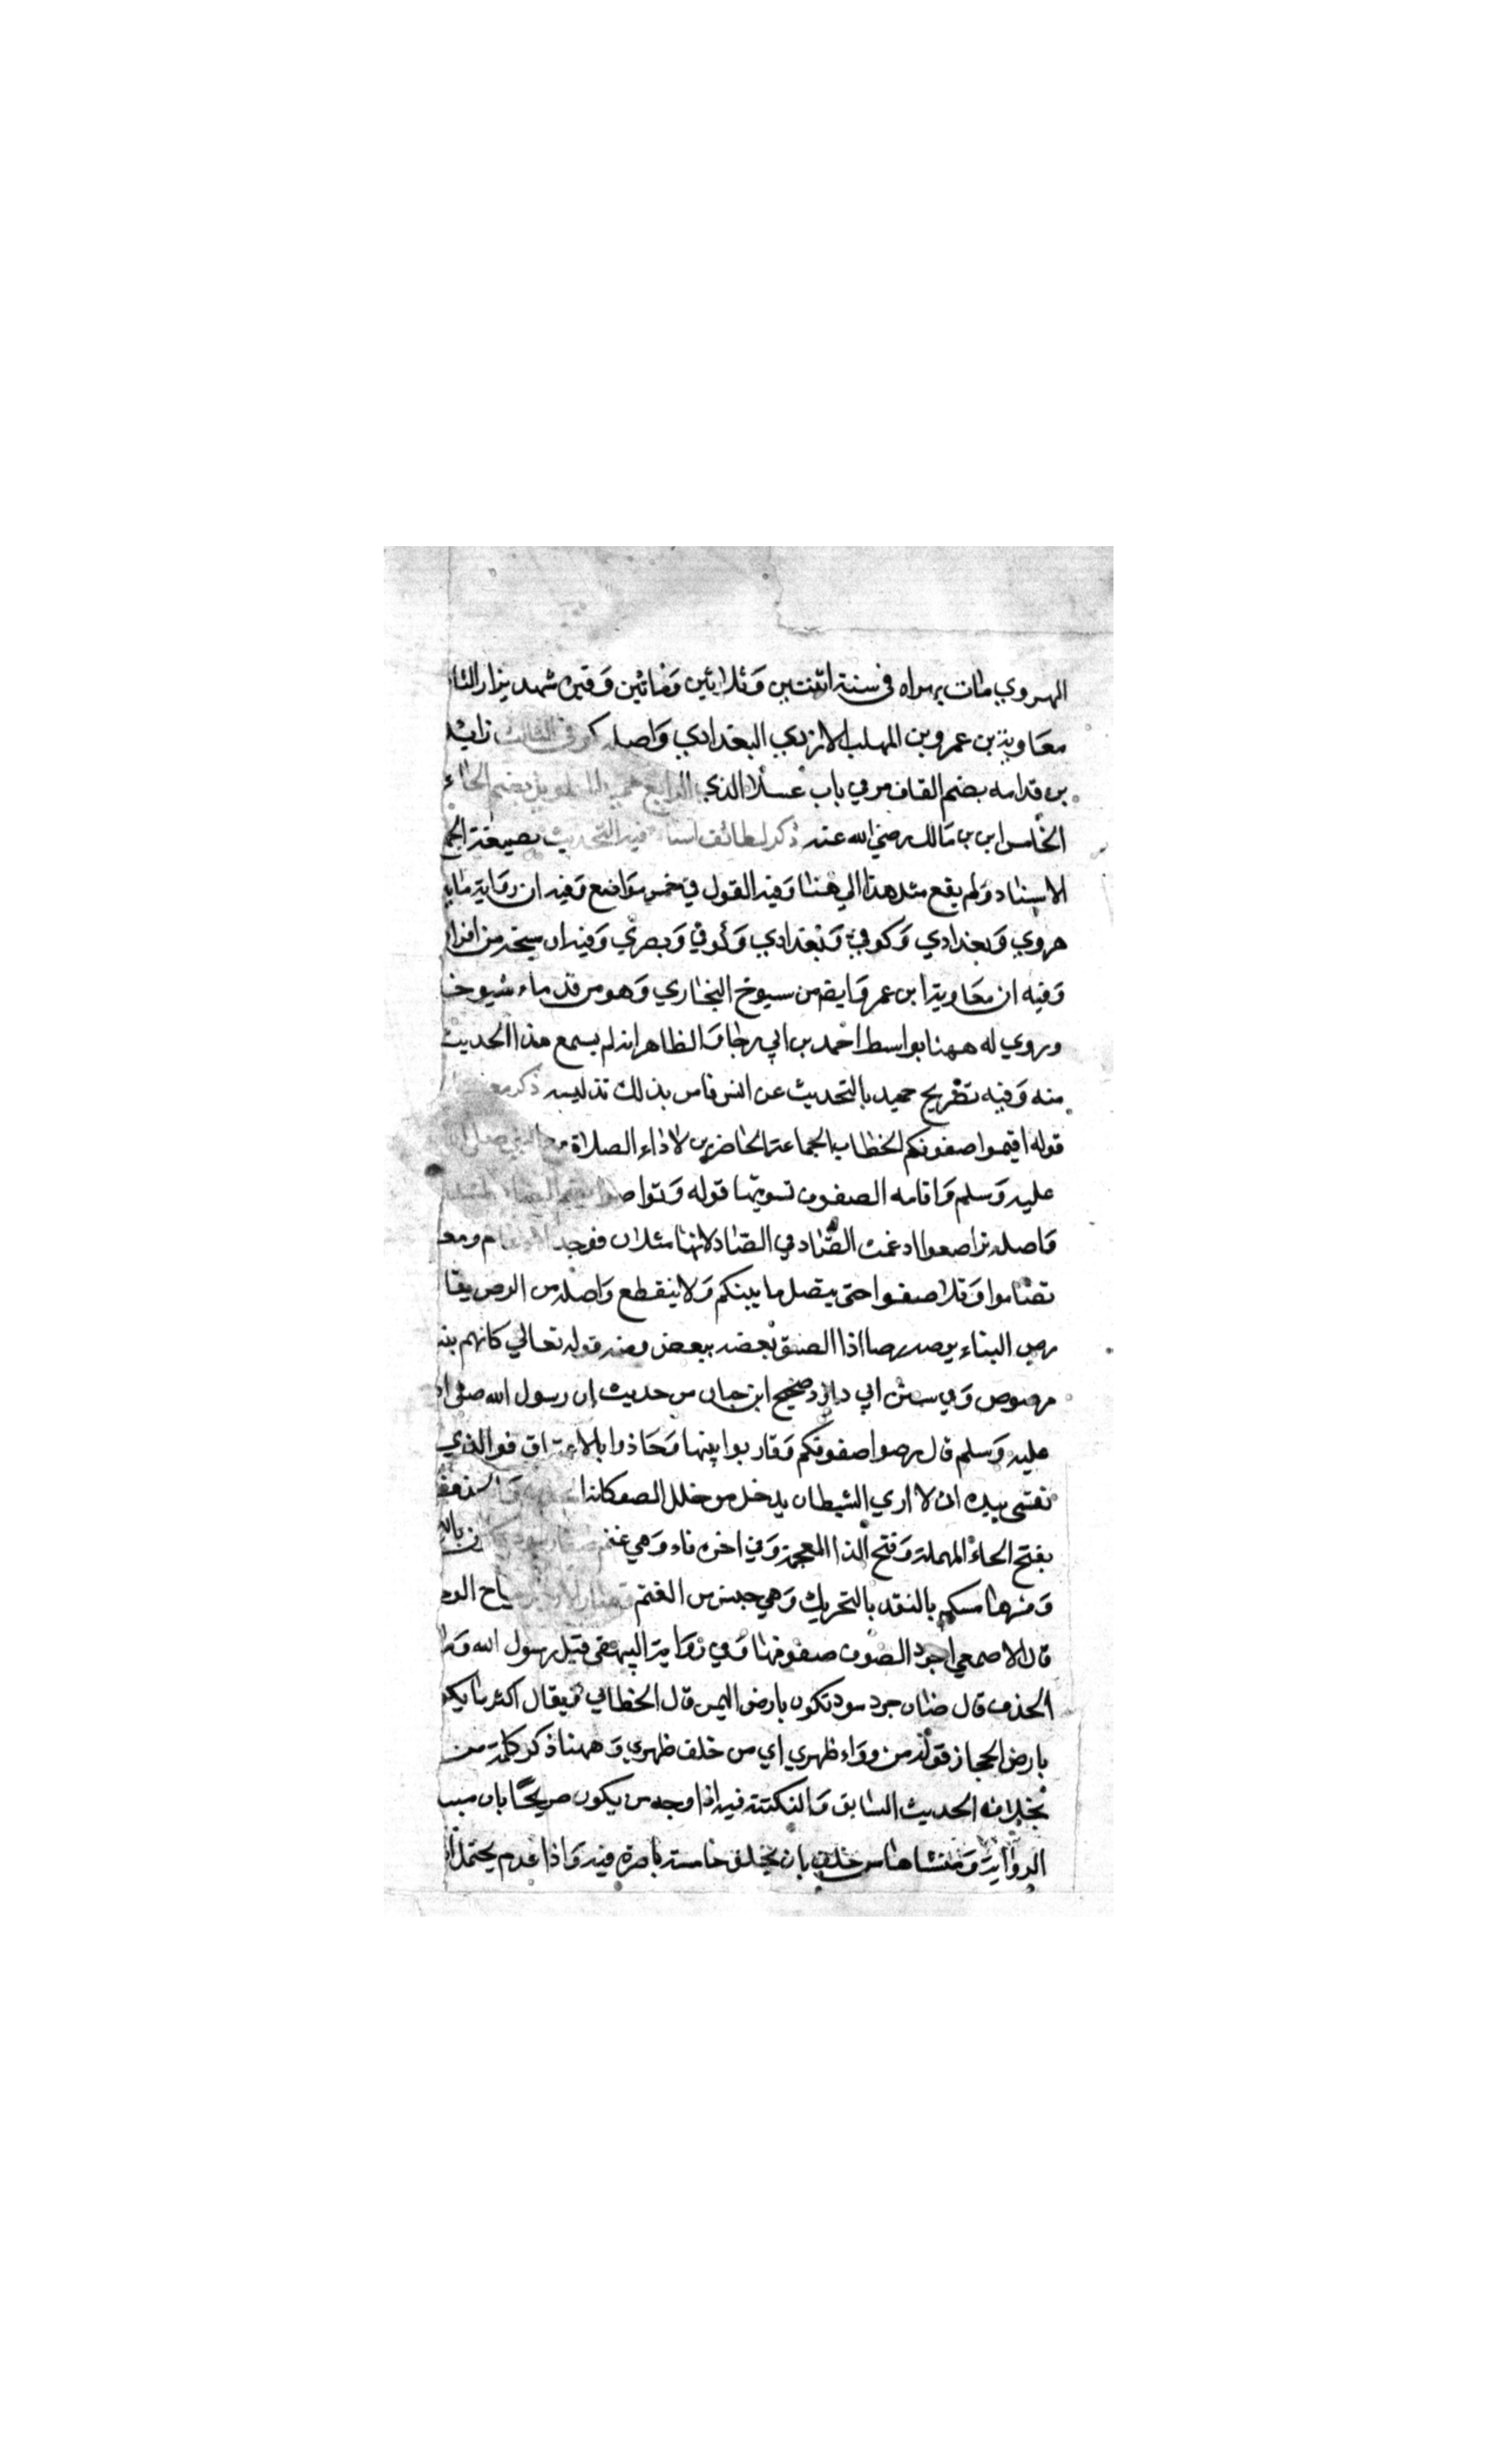 الهروي مات بهراه في سنة اثنتين وثلاثين ومائتين وقبره مشهد يزار الثا
معاوية بن عمرو بن المهلب الازدي البغدادي واصله كوفي الثالث زايد
بن قدامه بضم القاف مر في باب غسل المذي الرابع حميد الطويل بضم الحاء
الخامس ابن بن مالك رضي الله عنه ذكر لطائف اسناده فيه التحديث بصيغة الجم
الاسناد ولم يقع مثل هذا الي هنا وفيه القول في خمس مواضع وفيه ان رواية ما
هروي وبغدادي وكوفي وبغدادي وكوفي وبصري وفيه ان شيخه من افرا
وفيه ان معاوية ابن عمرو ايضا من شيوخ البخاري وهو من قدماء شيوخ
وروي له ههنا بواسط احمد بن ابي رجا والظاهر انه لم يسمع هذا الحديث
منه وفيه تصريح حميد بالتحديث عن انس فامن بذلك تدليسه ذكر معن
قوله اقيموا صفوفكم الخطاب الجماعة الحاضرين لاداء الصلاة مع النبي صلى
عليه وسلم واقامه الصفوف تسويتها قوله وتراصوا بضم الصاد المشد
واصله تراصصوا ادغمت الصاد في الصاد لانها مثلان فوجد الادغام ومعـ
تضاموا وتلاصفوا حتى يتصل ما بينكم ولا ينقطع واصله من الرص يقا
رص البناء يرصه رصا اذا الصق بعضه ببعض ومنه قوله تعالي كانهم بنيـ
مرصوص وفي سنن ابي داود وصحيح ابن حبان من حديث ان رسول الله صلى ا
عليه وسلم قال رصوا صفوفكم وقاربوا بينها وحاذوا بالاعناق فوالذي
نفسي بيده ان لا اري الشيطان يدخل من خلل الصف كانها
بفتح الحاء المهملة وفتح الذا المعجمة وفي اخره فاء وهي غنم صغار سود
ومنها مسكه بالنقد بالتحريك وهي جنس من الغنم قصار الارجل قباح الوجـ
قال الاصمعي اجود الصوف صفوفها وفي رواية البيهقي قيل رسول الله وما
الحذف قال ضان جرد سود تكون بارض اليمن قال الخطابي ويقال اكثر ما يكو
بارض الحجاز قوله من وراء ظهري اي من خلف ظهري وههنا ذكر كلمة من
بخلاف الحديث السابق والنكتة فيه اذا وجد من يكون صريحا بان مبـ
الرواية ومنشاها من خلف بان يخلق حاسة باصرة فيه واذا عدم يحتمل ا